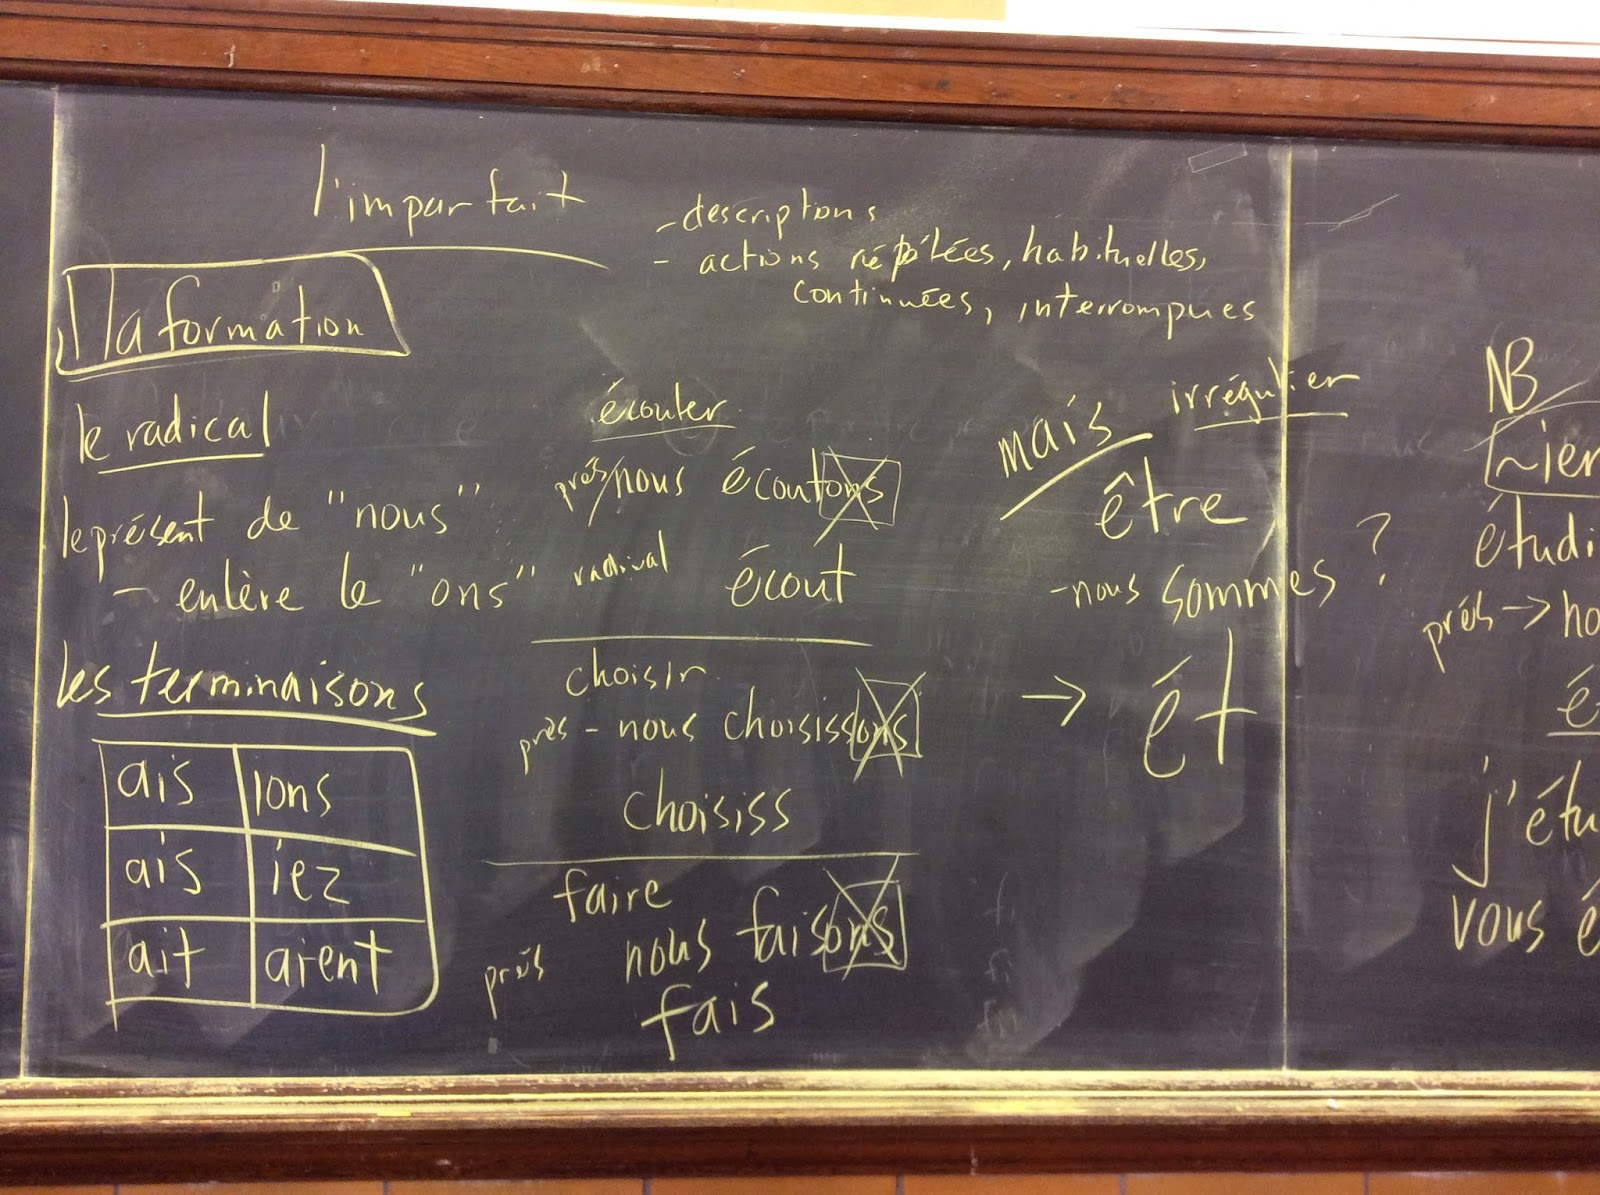 l'imparfait
- descriptions
- actions répétées, habituelles,
continuées, interrompues
la formation
le radical
le présent de "nous"
- enlère le "ons"
les terminaisons
ais ions
ais iez
ait aient
écouter
prés/nous écoutons
radival écout
choisir
près - nous choisissons
choisiss
faire
prés nous faisons
fais
mais irrégulier
être
- nous sommes ?
→ ét
NB
étudi
prés → no
é
j'étu
vous é